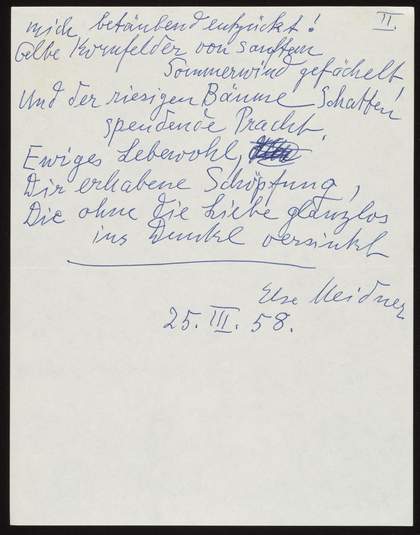 II.
mich betäubend entzückt!
Gelbe Kornfelder von sanftem
Sommerwind gefächelt!
Und der riesigen Bäume Schatten
spendende Pracht.
Ewiges Lebewohl,
Dir erhabene Schöpfung,
Die ohne die Liebe glanzlos
ins Dunkel versinkt
Else Meidner
25. III. 58.